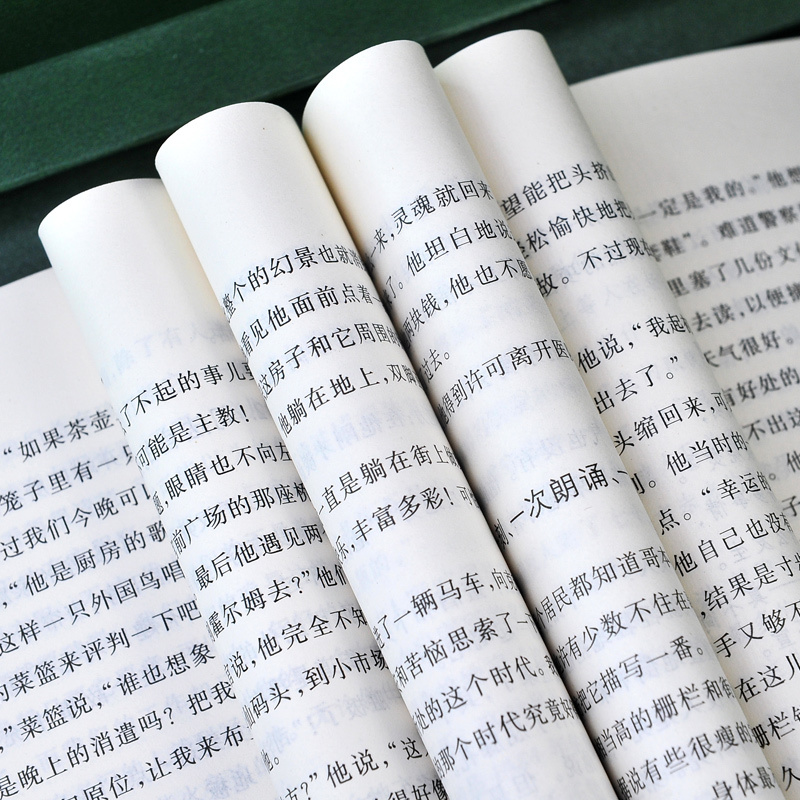 “如果茶壶
笼子里有一只
过我们今晚可以
“他是厨房的歌
这样一只外国鸟唱
的菜篮来评判一下吧
”菜篮说，“谁也想象
是晚上的消遣吗？把我
原位，让我来布
了不起的事儿要
可能是主教！
，眼睛也不向左
前广场的那座桥
最后他遇见两
霍尔姆去？”他们
说，他完全不知
码头，到小市场
他。
方？”他说，“这
很好像
整个的幻景也就消
看见他面前点着
这房子和它周围的
他躺在地上，双脚
直是躺在街上的
乐，丰富多彩！可
了一辆马车，向克
和苦恼思索了一
处的这个时代。我
那个时代究竟好
来，灵魂就回来
了。他坦白地说
两块钱，他也不愿
过去。
得到许可离开医
一次朗诵、
居民都知道哥本
许有少数不住在
把它描写一番。
相当高的栅栏和街
据说有些很瘦的
身体最
望能把头挤
轻松愉快地把
故。不过现
他说，“我起
出去了。”
头缩回来，可
。他当时的
点。“幸运的
他自己也没有
，结果是寸步
手又够不
在这儿
栅栏
久
一定是我的。”他想
鞋”。难道警察
里塞了几份文件
去读，以便摘
天气很好。
有好处的
不出这